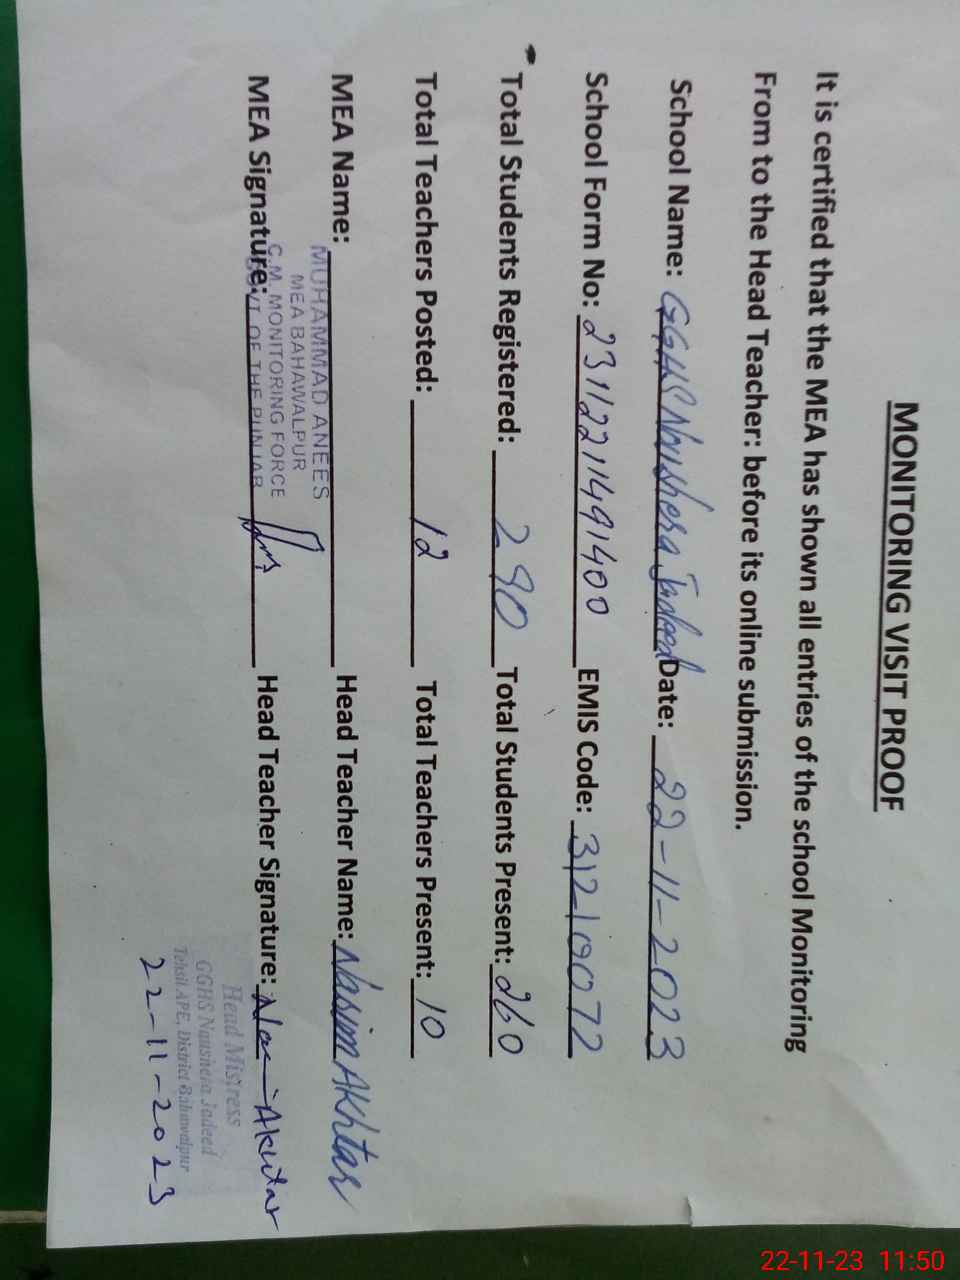 MONITORING VISIT PROOF
It is certified that the MEA has shown all entries of the school Monitoring
From to the Head Teacher: before its online submission.
School Name: GGHS Naushera Jadeed Date: 22-11-2023
School Form No: 23112211491400 EMIS Code: 31210072
Total Students Registered: 290 Total Students Present: 260
Total Teachers Posted: 12 Total Teachers Present: 10
MEA Name: Head Teacher Name: Nasim Akhtar
MUHAMMAD ANEES
MEA BAHAWALPUR
C.M. MONITORING FORCE
GOVT OF THE PUNJAB
MEA Signature: Head Teacher Signature: Akhtar
Head Mistress
GGHS Naushera Jadeed
Tehsil APE, District Bahawalpur
22-11-2023
22-11-23 11:50